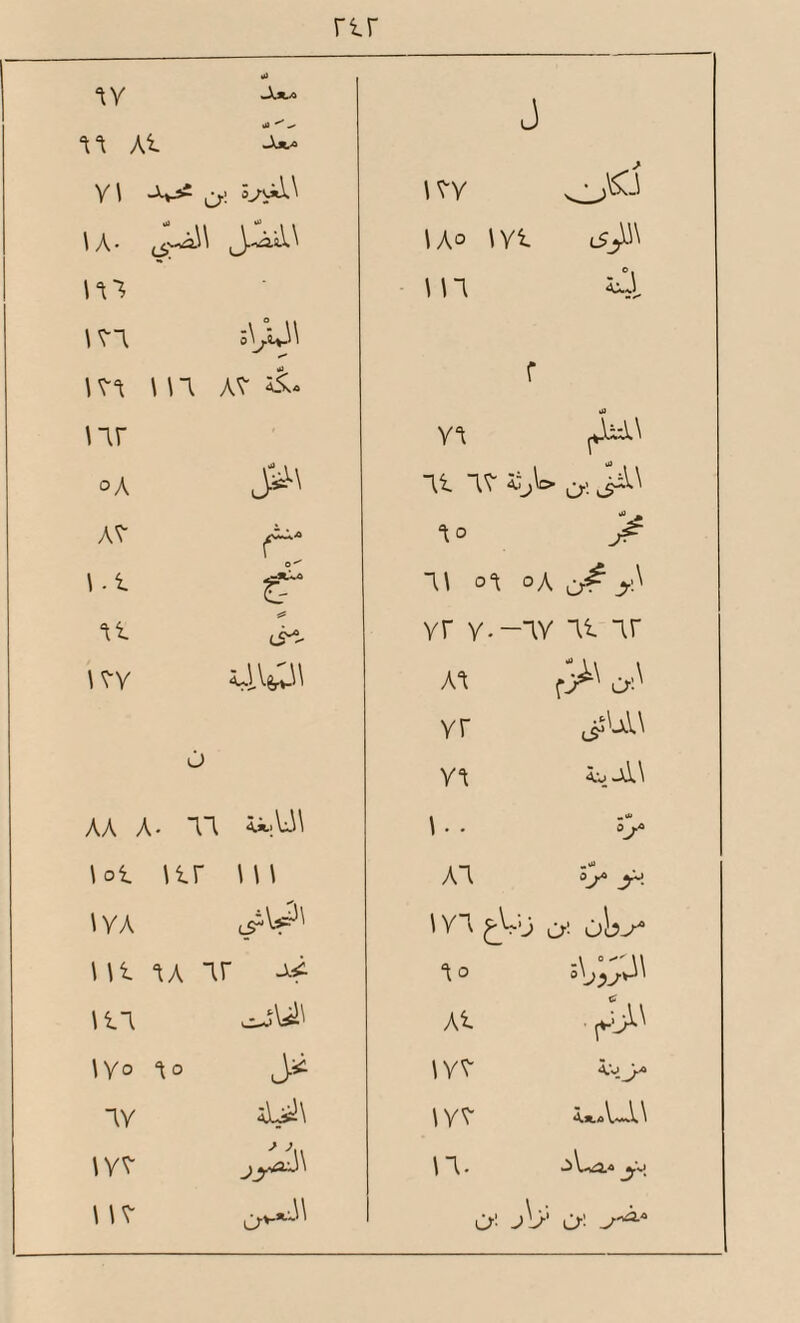 ٢٤٢
ل
١٣٧
اللوى ١٧٤ ١٨٥
لِيْنة ١١٦
م
المتثلّم ٧٩
المثنّى بن حارثة ٦٣ ٦٤
٩٥
ابو محجن ٥٨ ٥٩ ٦١
٦٢ ٦٤ ٦٧-٧٠ ٧٢
ابن المخزّم ٨٩
المدائنى ٧٢
المدينة ٧٩
مرّة ١٠٠
بنو مرّة ٨٦
مروان بن زنباع ١٧٦
المَرَوْراة ٩٥
المزنّم ٨٤
مزينة ١٧٣
المسامعة ١٧٣
بنو مصاد ١٦٠
مضر بن نزار بن
معدّ ٩٧
مَعَدّ ٨٤ ٩٩
المغيرة بن محمد ٧١
المفضّل الضبّى ١٨٠
١٩٦
المِقْراة ١٣٦
مكّة ٨٣ ١١٦ ١٣٩
١٦٢
المنخّل ٥٨
منشم ٨٣
مَنْعِج ١٠٤
مِنى ٩٤
المَهالِبة ١٣٧
ن
النابغة ٦٦ ٨٠ ٨٨
١١١ ١٤٢ ١٥٤
النجاشى ١٧٨
نجد ٦٢ ٩٨ ١١٤
النحائت ١٤٦
نخل ٩٥ ١٧٥
النخيلة ٦٧
١٧٣
النعمن ١١٣